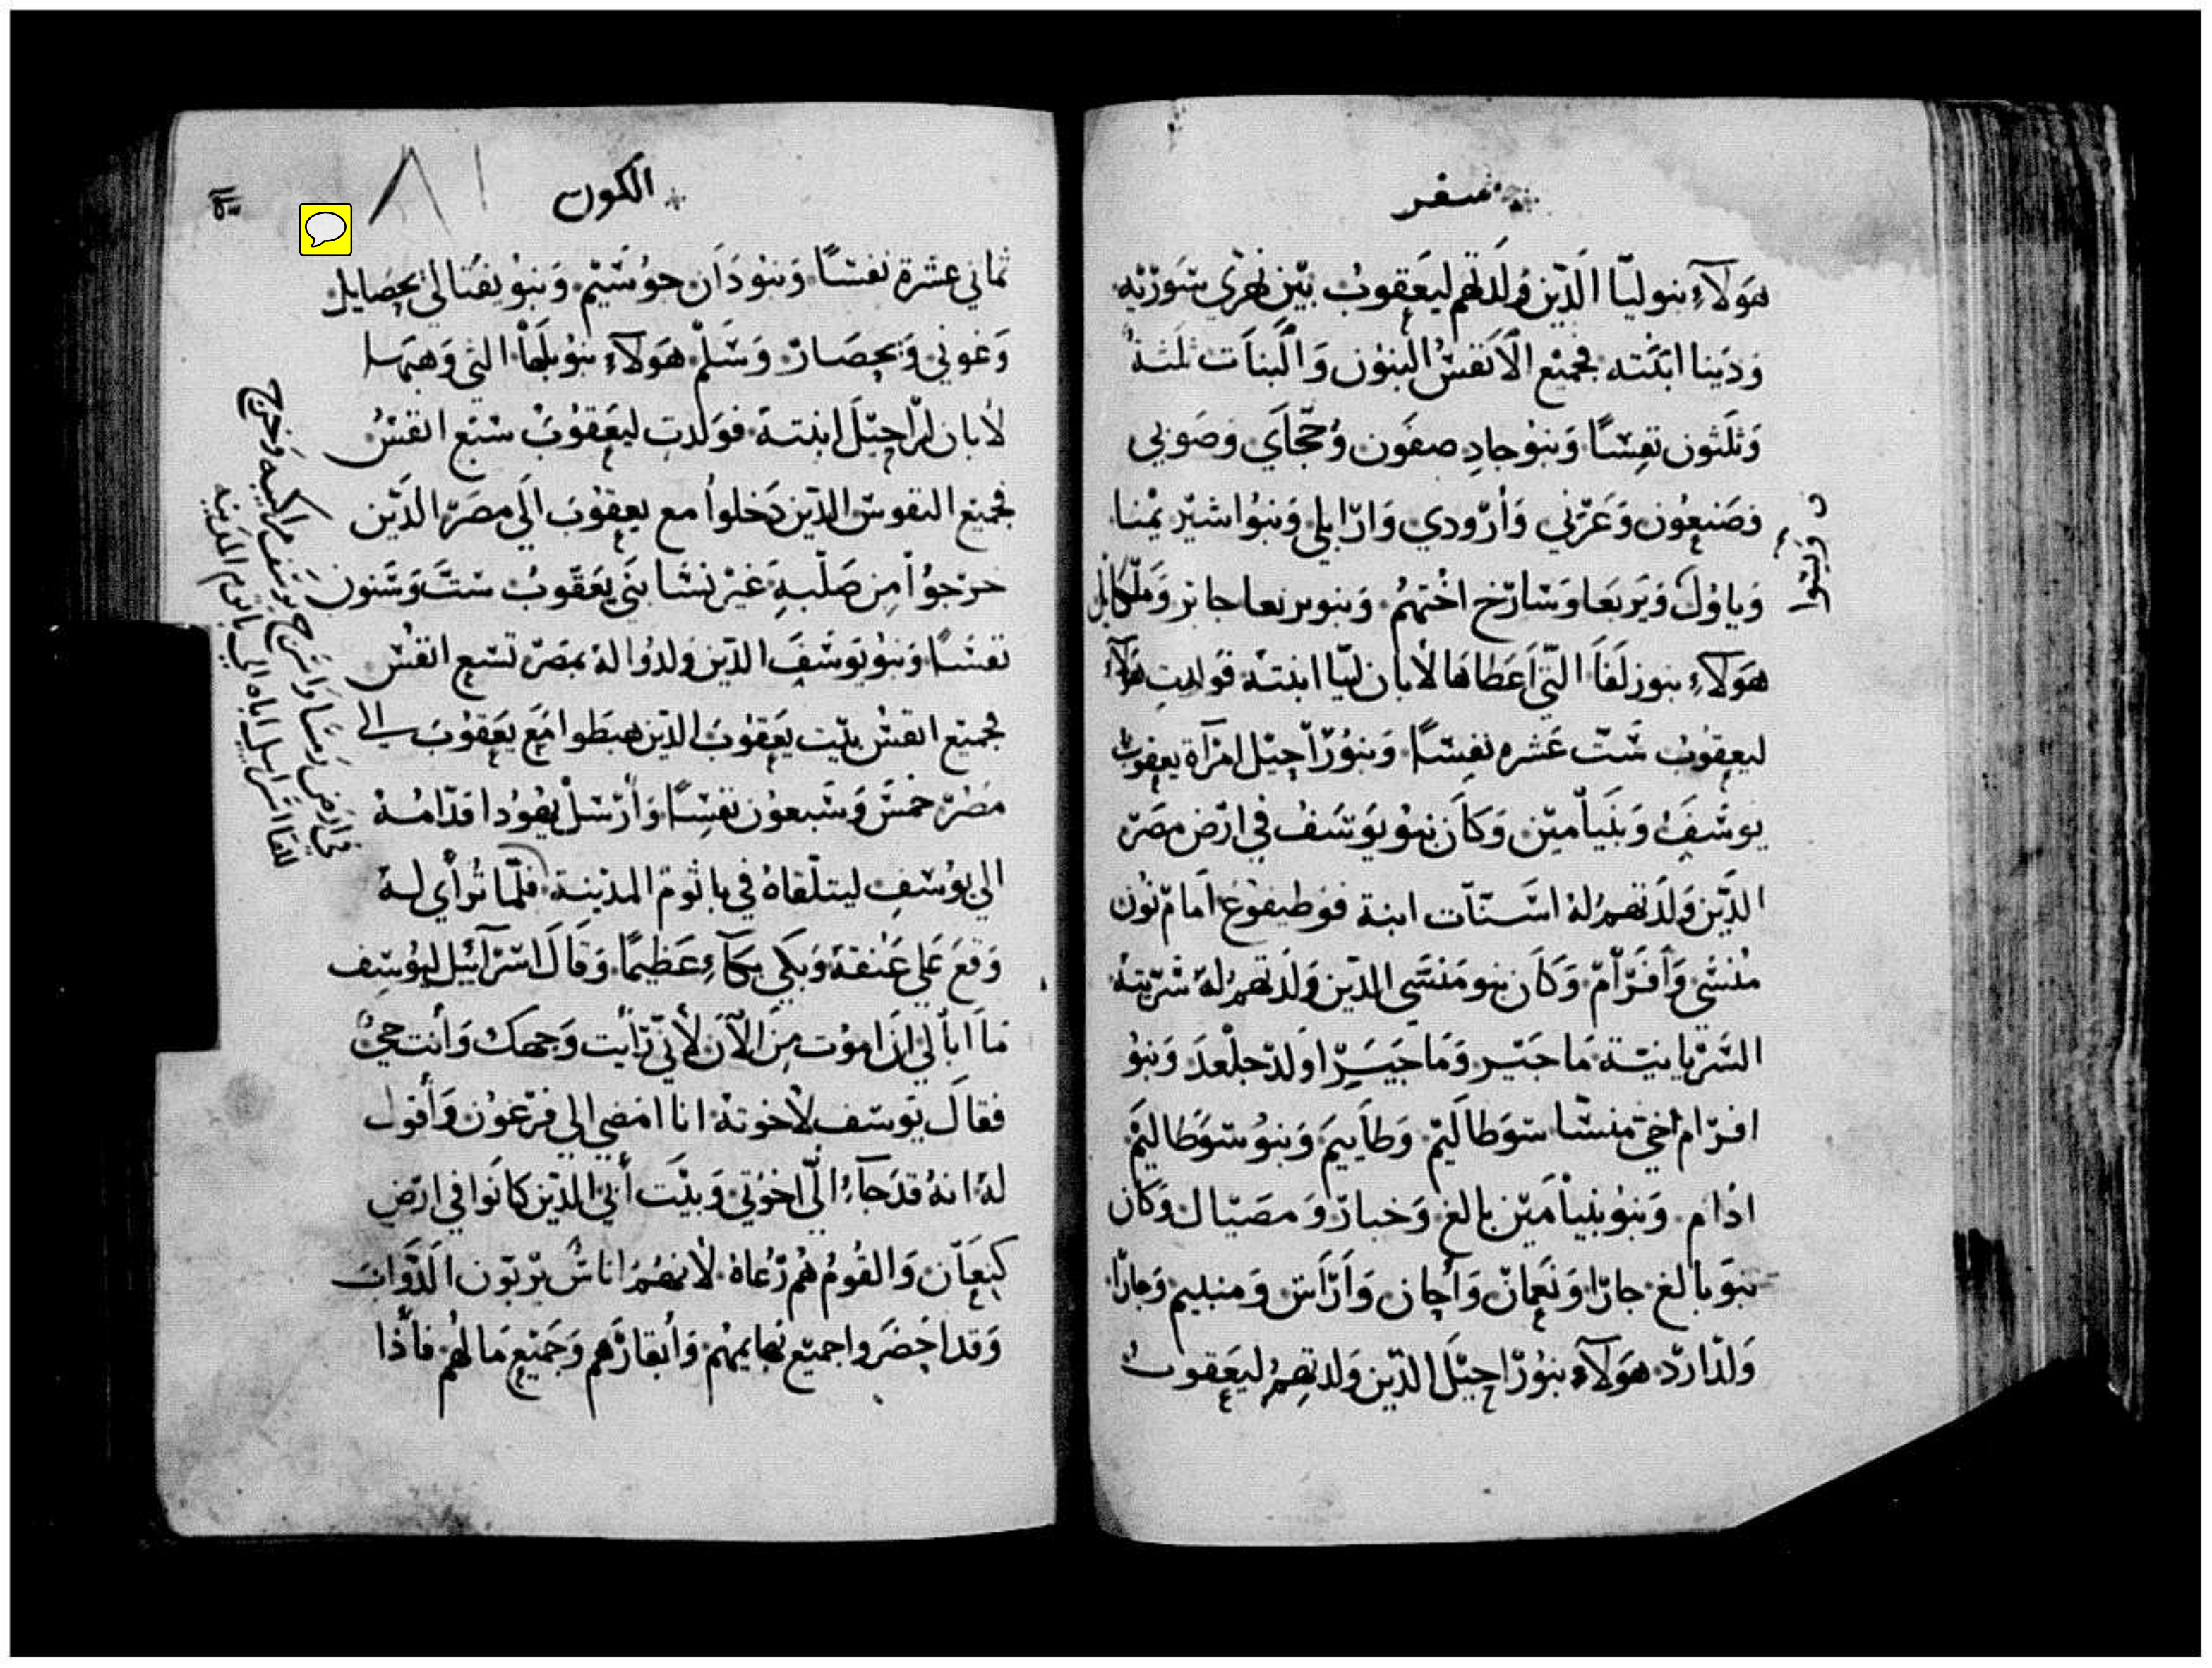 سفر
هَولآءِ بنو ليّا الَّذين وَلَدتهم ليَعقوبُ بيْن نهرَي سَورْيَه
وَدَينا ابنَته فجميْع الاَنفسُ البنوُن وَالبناَت ثلثةُ
وَثلَثون نفسًا وَبنوُ جادِ صفَون وَحجَاَي وَصَوني
وَصَنعوُن وَعَرْني وَأرْودي وَارْايلي وَبنوُا شيْر يمْنا
وَياوُل وَبَريَعَا وَسَارَخ اختهمُ وَبنو بريعا جابر وَملْكايل
هَولآءِ بنو زلَفاَ التّي اَعَطاهَا لاَبان ليّا ابنتهْ فوَلدتِ هولآءِ
ليعقوُبُ ستّ عَشره نفسًا وَبنوُ رْاحيْل امرَآة يعقوب
يوسَفَ وَبنَياَميْن وَكاَن بنوُ يوَسَف في ارْض مصَر
الذَّين وَلَدتهمُ لهُ اسَّنّات ابنة فوَطيفوَغ امَامْ نُون
مُنسّي وَأفَرَام وَكاَن بنو مَنسّي الذّين وَلَدتهمُ لهَ سُرّيتهُ
السّرْيانيّة مَاجَيْر وَمَاجَيَرْ اولَدْ جلْعدَ وَبنوُ
افرْام اخيْ منسّا سوَطالَيْم وَطاَييَم وَبنوُ سوَطاليمَ
اذام وَبنوُ بنياَميْن بالغ وَخبارْ وَمصَيْال وَكان
بنوَ بالغ جارَا وَنعَمانْ وَأجان وَارْاَسْ وَمنبليم وَجارَا
وَلْدارْد هَولآءِ بنوُ رْاحيْل الذّين وَلدتهمُ ليَعقوبُ
الكون
٨١
ثماني عشرَة نفسًا وَبنو دَاَن حوُشَيْم وَبنوُ نفتالي يحصَايل
وَغوني وَيحصَارْ وَسَلمْ هَولآءِ بنوُ بلَهاْ التي وَهبَها
لاَبان لرَاحيْلَ ابنتهَ فوَلدت ليعَقوُبْ سَبَع انفسُ
فجميَع النفوسَ الذّين دَخلواُ مع يعقوُبَ الَي مصَرْ الَذّين
خرَجوُاْ مِن صَلْبهِ غيْر نسَا بَني يعَقوبُ ستَّ وَسَتون
نفسًا وَبنوُ يوَسَفَ الذّين ولدُوا لهُ بمصَرْ تسَع انفسُ
فجميَع انفسُ بيْت يعَقوُبَ الذين هبَطوا مَعَ يعَقوُبَ الي
مصَرْ خمسَ وَسَبعوُن نفسًا وَأرْسَلْ يهَوُدا قدّامُهُ
الي يوُسَفِ ليتلْقاهُ في باثوم المدْينة فلمّا ترُأي لهُ
وَقعَ عَلي عَنقهُ وَبكي بكآءِ عَظيمًا وَقاَلَ اسرَآئيْل ليوُسِف
مَا اباَلي اِن اَموُت مِنَ الآنَ لأني رَأيْت وَجهك وَأنت حيُ
فقالَ يوَسَف لاْخوتهْ انا امضي الي فرَعوُن وَأقول
لهُ انهُ قدَ جآءُ الَّي اخوُتي وَبيْت أَبيْ الذّين كانَوُا في ارْض
كنَعاَن وَالقُومُ هُم رُعاهْ لاْنهمُ اناسُ يرْبوّن الَدّوَاب
وَقد احَضرَوا جميَع بهايمهمُ وَأبقارْهمَ وَجَميْع مَا لهُمْ فأذّا